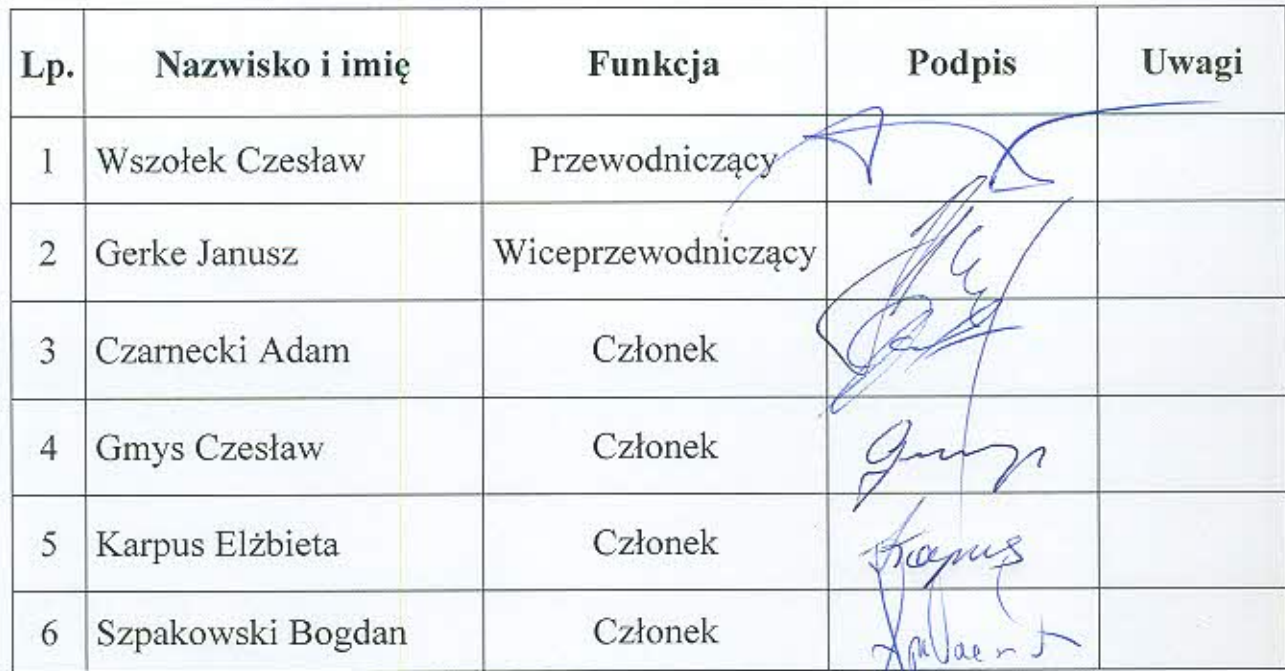 Lp. Nazwisko i imię Funkcja Podpis Uwagi
1 Wszołek Czesław Przewodniczący
2 Gerke Janusz Wiceprzewodniczący
3 Czarnecki Adam Członek
4 Gmys Czesław Członek
5 Karpus Elżbieta Członek Karpus
6 Szpakowski Bogdan Członek